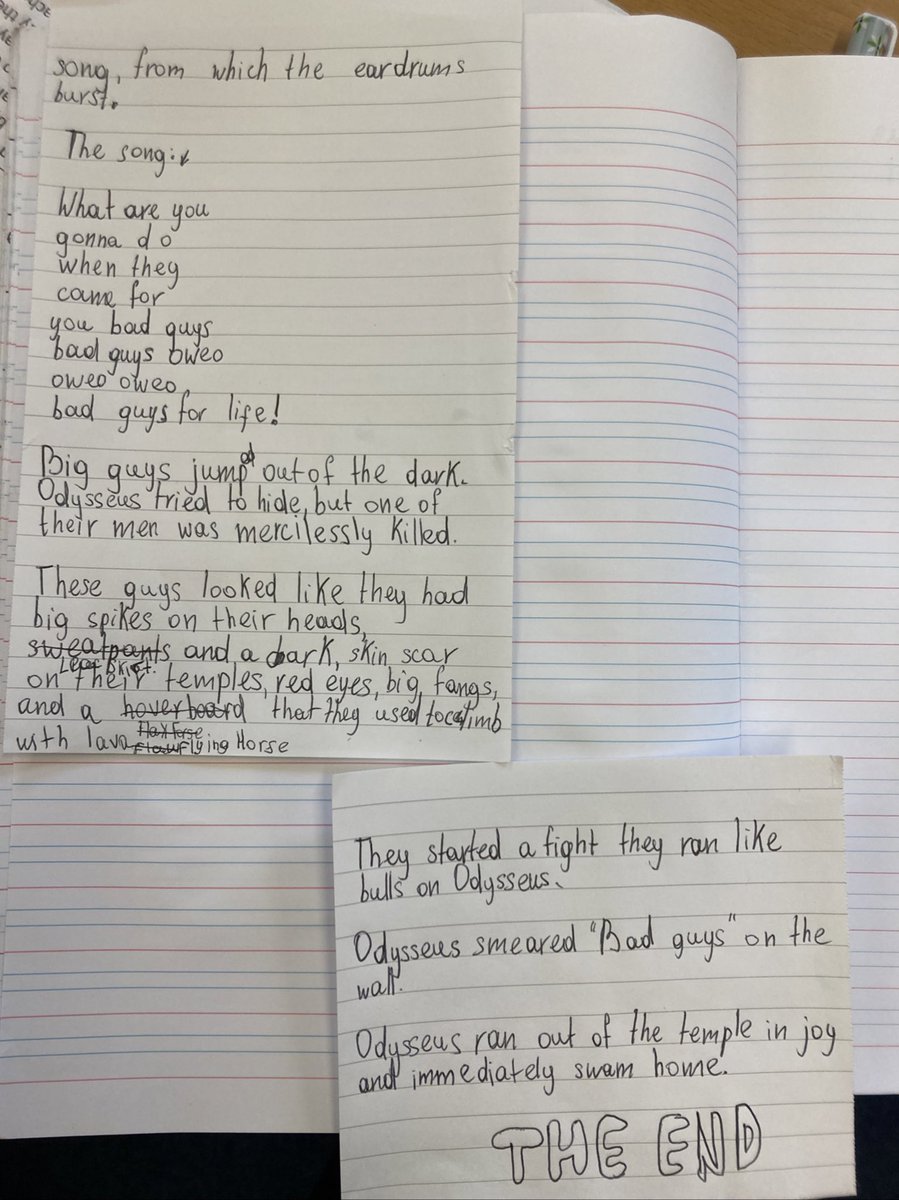 song, from which the eardrums
burst.
The song:
What are you
gonna do
when they
came for
you bad guys
bad guys oweo
oweo oweo,
bad guys for life!
Big guys jumped out of the dark.
Odysseus tried to hide, but one of
their men was mercilessly killed.
These guys looked like they had
big spikes on their heads,
sweatpants and a dark, skin scar
on their temples, red eyes, big fangs,
and a hoverboard that they used to climb
with lava Flying Horse
They started a fight they ran like
bulls on Odysseus.
Odysseus smeared "Bad guys" on the
wall.
Odysseus ran out of the temple in joy
and immediately swam home.
THE END